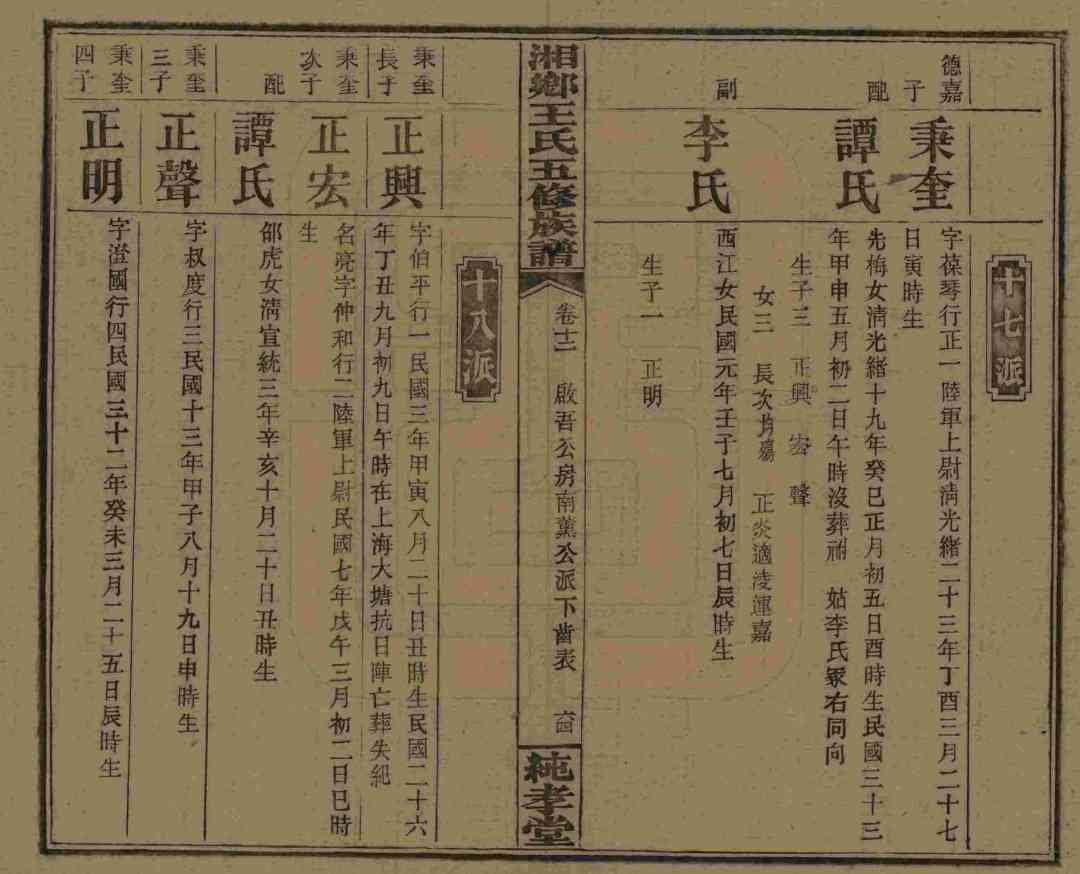 十七派
德嘉子
秉奎
字葆琴行正一陸軍上尉淸光緒二十三年丁酉三月二十七
日寅時生
配
譚氏
先梅女淸光緒十九年癸巳正月初五日酉時生民國三十三
年甲申五月初二日午時沒葬祔 姑李氏冢右同向
生子三 正興 宏 聲
女三 長次均殤 正炎適淩運嘉
副
李氏
西江女民國元年壬子七月初七日辰時生
生子一 正明
湘鄉王氏五修族譜
卷十二 啟吾公房南薰公派下齒表
純孝堂
十八派
秉奎長子
正興
字伯平行一民國三年甲寅八月二十日丑時生民國二十六
年丁丑九月初九日午時在上海大塘抗日陣亡葬失紀
秉奎次子
正宏
名亮字仲和行二陸軍上尉民國七年戊午三月初二日巳時
生
配
譚氏
郃虎女淸宣統三年辛亥十月二十日丑時生
秉奎三子
正聲
字叔度行三民國十三年甲子八月十九日申時生
秉奎四子
正明
字澄國行四民國三十二年癸未三月二十五日辰時生